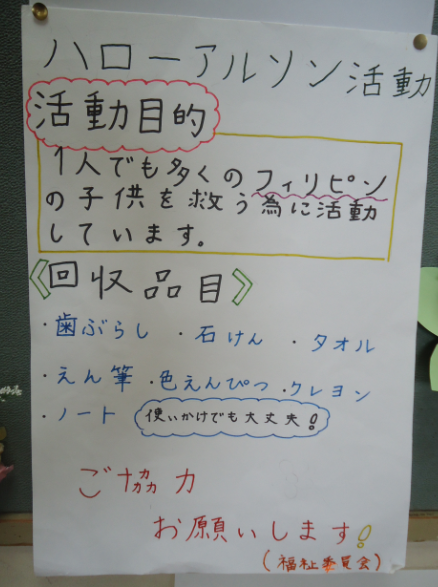 ハローアルソン活動
活動目的
1人でも多くのフィリピン
の子供を救う為に活動
しています。
《回収品目》
・歯ぶらし ・石けん ・タオル
・えん筆 ・色えんぴつ ・クレヨン
・ノート 使いかけでも大丈夫!
ご協力
お願いします!
(福祉委員会)